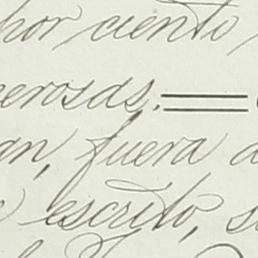 por ciento
erosas.
an, fuera a
escrito, s